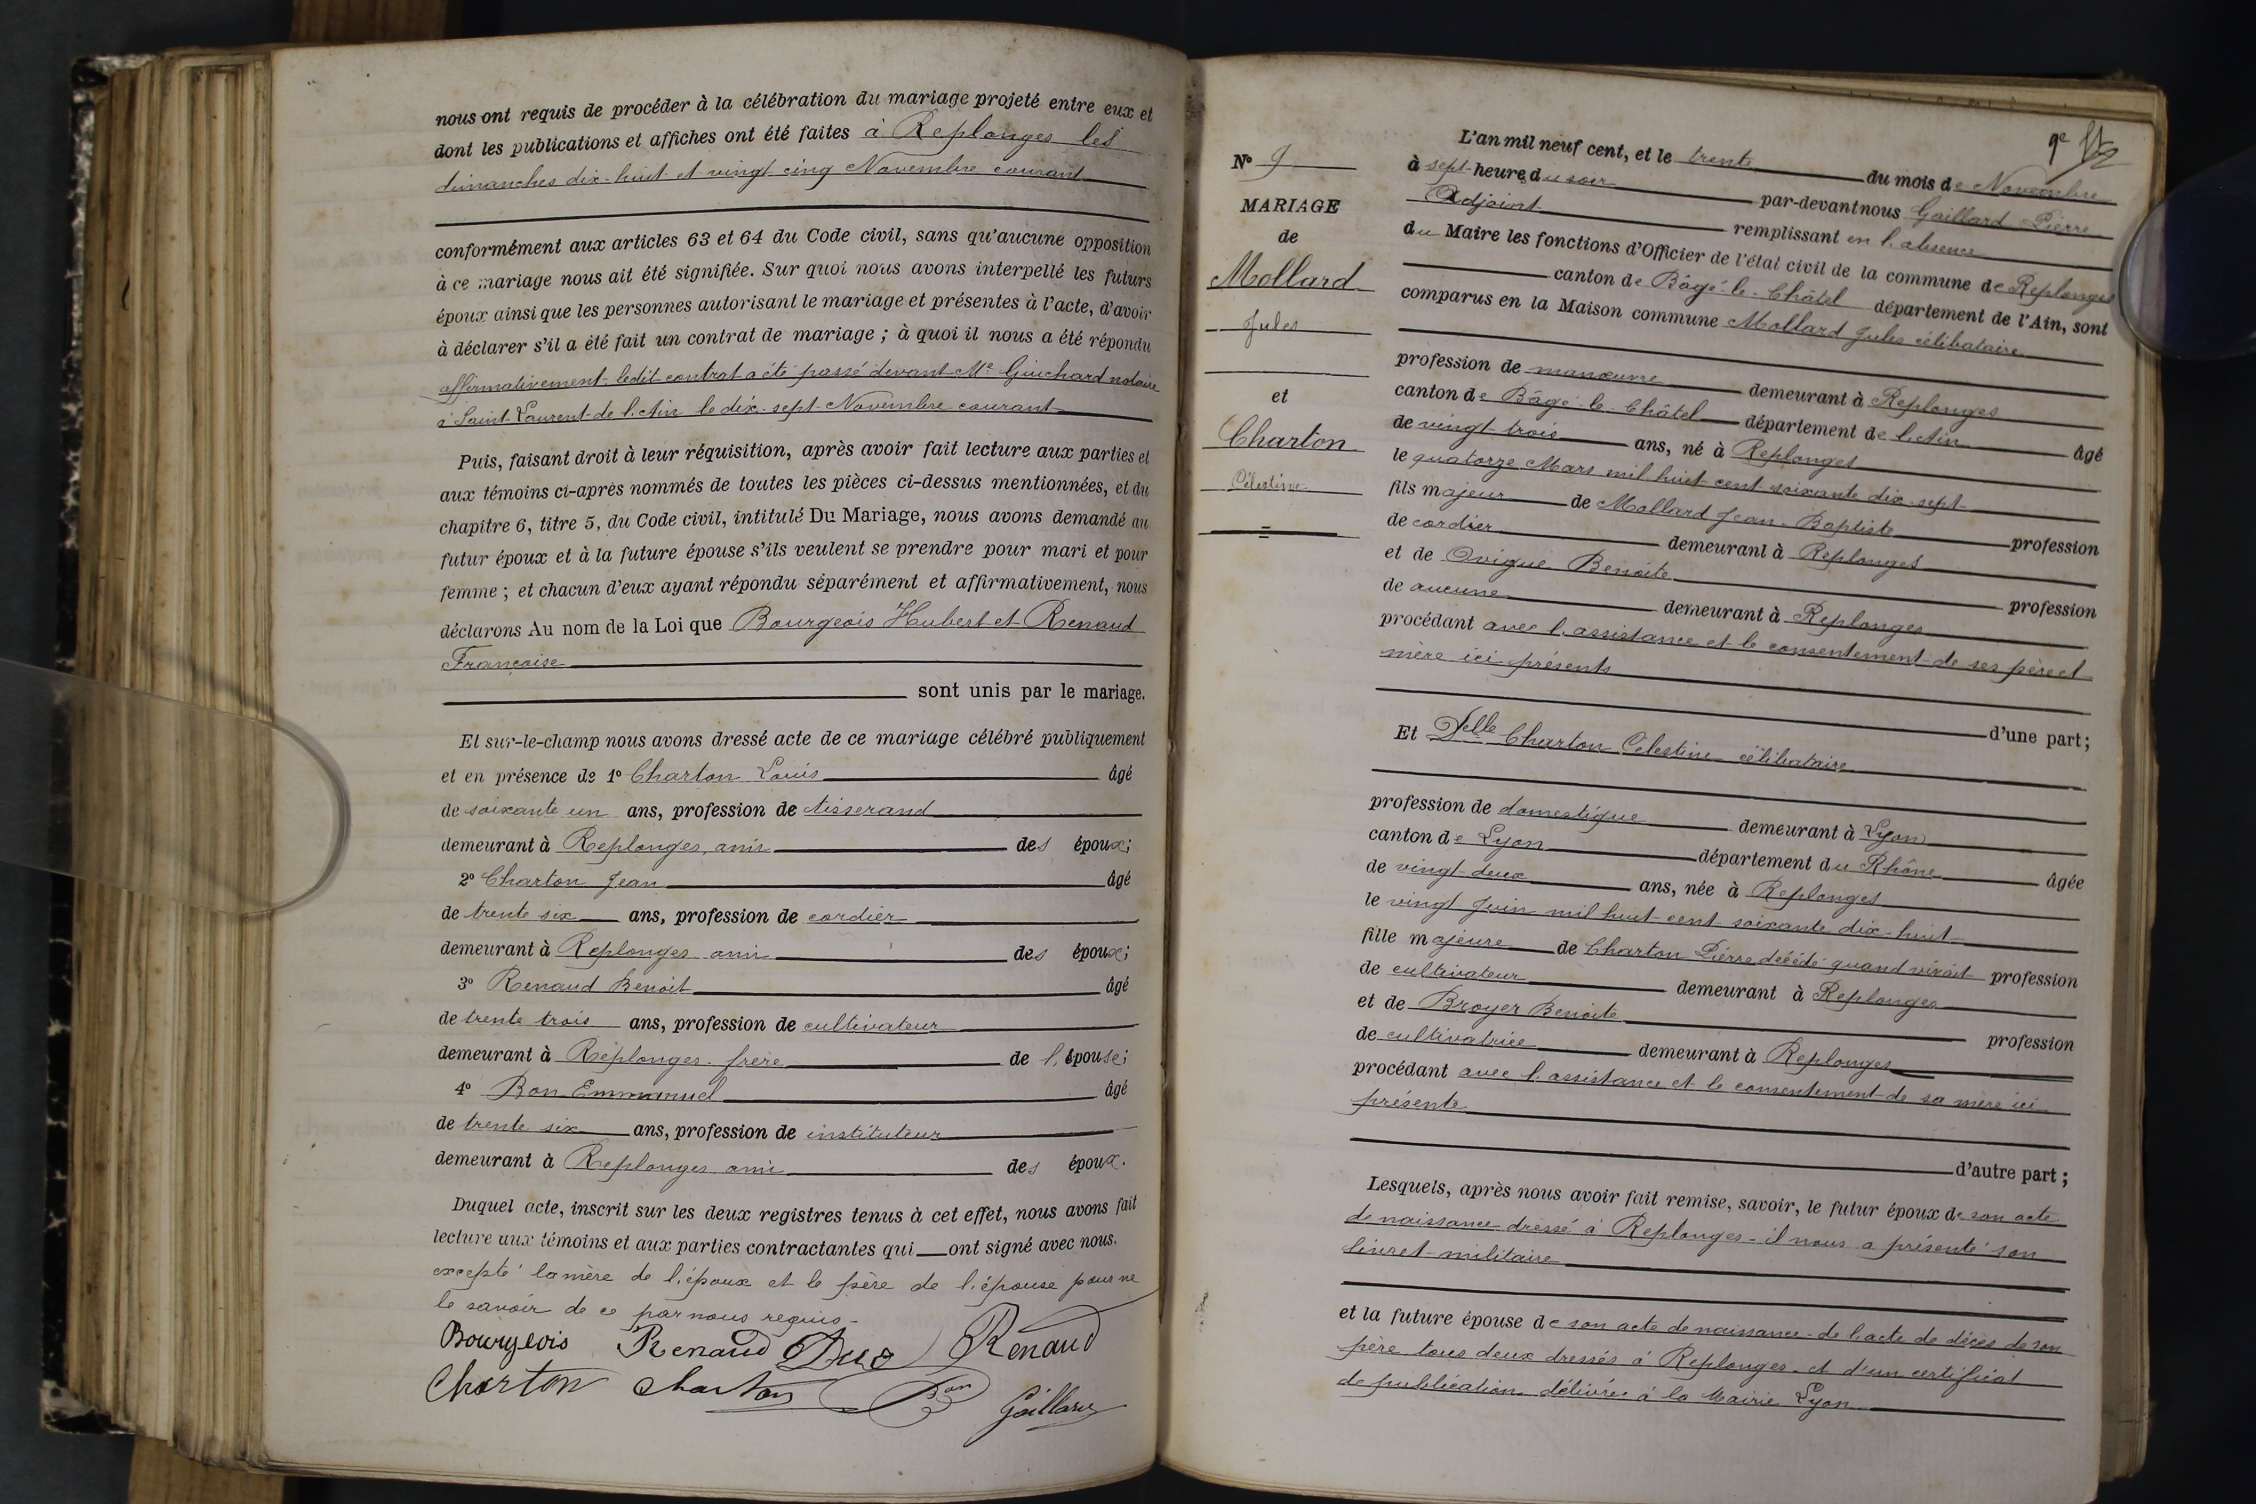 nous ont requis de procéder à la célébration du mariage projeté entre eux et
dont les publications et affiches ont été faites à Replonges les
dimanches dix-huit et vingt-cinq Novembre courant
conformément aux articles 63 et 64 du Code civil, sans qu'aucune opposition
à ce mariage nous ait été signifiée. Sur quoi nous avons interpellé les futurs
époux ainsi que les personnes autorisant le mariage et présentes à l'acte, d'avoir
à déclarer s'il a été fait un contrat de mariage ; à quoi il nous a été répondu
affirmativement ledit contrat a été passé devant Me Guichard notaire
à Saint-Laurent-de l'Ain le dix-sept Novembre courant
Puis, faisant droit à leur réquisition, après avoir fait lecture aux parties et
aux témoins ci-après nommés de toutes les pièces ci-dessus mentionnées, et du
chapitre 6, titre 5, du Code civil, intitulé Du Mariage, nous avons demandé au
futur époux et à la future épouse s'ils veulent se prendre pour mari et pour
femme ; et chacun d'eux ayant répondu séparément et affirmativement, nous
déclarons Au nom de la Loi que Bourgeois Hubert et Renaud
Françoise
sont unis par le mariage.
Et sur-le-champ nous avons dressé acte de ce mariage célébré publiquement
et en présence de 1° Charton Louis âgé
de soixante un ans, profession de tisserand
demeurant à Replonges, ami des époux;
2° Charton Jean âgé
de trente six ans, profession de cordier
demeurant à Replonges ami des époux;
3° Renaud Benoit âgé
de trente trois ans, profession de cultivateur
demeurant à Replonges frère de l'épouse;
4° Bon Emmanuel âgé
de trente six ans, profession de instituteur
demeurant à Replonges ami des époux.
Duquel acte, inscrit sur les deux registres tenus à cet effet, nous avons fait
lecture aux témoins et aux parties contractantes qui ont signé avec nous.
excepté la mère de l'époux et le père de l'épouse pour ne
le savoir de ce par nous requis
Bourgeois Renaud Renaud
Charton Charton Bon Gaillard
9e
N° 9
MARIAGE
de
Mollard
Jules
et
Charton
Célestine
L'an mil neuf cent, et le trente du mois de Novembre
à sept heures du soir par-devant nous Gaillard Pierre
Adjoint remplissant en l'absence
du Maire les fonctions d'Officier de l'état civil de la commune de Replonges
canton de Bâgé-le-Châtel département de l'Ain, sont
comparus en la Maison commune Mollard Jules célibataire
profession de manœuvre demeurant à Replonges
canton de Bâgé-le-Châtel département de l'Ain âgé
de vingt trois ans, né à Replonges
le quatorze Mars mil huit cent soixante dix-sept
fils majeur de Mollard Jean-Baptiste profession
de cordier demeurant à Replonges
et de Ovigue Benoite profession
de aucune demeurant à Replonges
procédant avec l'assistance et le consentement de ses père et
mère ici présents
d'une part;
Et Delle Charton Célestine célibataire
profession de domestique demeurant à Lyon
canton de Lyon département du Rhône âgée
de vingt-deux ans, née à Replonges
le vingt Juin mil huit-cent soixante dix-huit
fille majeure de Charton Pierre décédé quand vivait profession
de cultivateur demeurant à Replonges
et de Broyer Benoite profession
de cultivatrice demeurant à Replonges
procédant avec l'assistance et le consentement de sa mère ici
présente
d'autre part ;
Lesquels, après nous avoir fait remise, savoir, le futur époux de son acte
de naissance dressé à Replonges - il nous a présenté son
livret militaire
et la future épouse de son acte de naissance - de l'acte de décès de son
père tous deux dressés à Replonges - et d'un certificat
de publication délivré à la Mairie Lyon